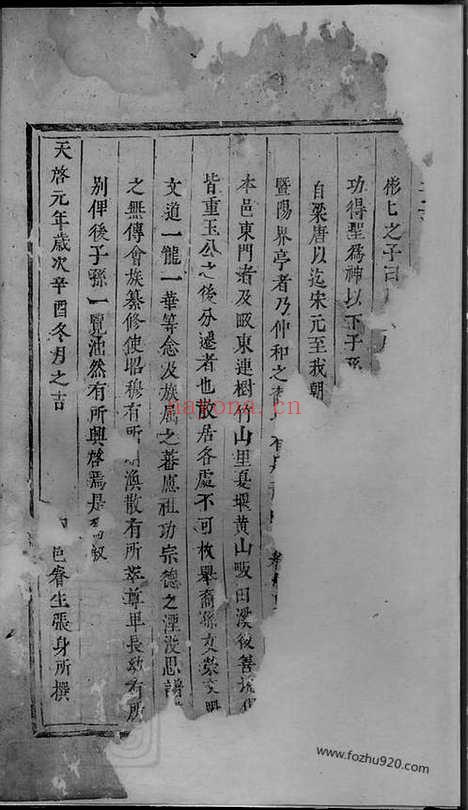 彬七之子曰
功得聖為神以下子孫
自梁唐以迄宋元至我朝
暨陽界亭者乃仲和之
本邑東門者及畈東連樹竹山里夏堰黄山畈田溪
皆重玉公之後分遷者也散居各處不可枚舉裔孫文榮文明
文道一龍一華等念及族屬之蕃應祖功宗德之湮没思譜
之無傳會族纂修使昭穆有所明渙散有所萃尊卑長幼有所
别俾後子孫一覽油然有所興啓焉是為叙
天啓元年歲次辛酉冬月之吉
邑庠生張身所撰
nayona.cn
www.fozhu920.com